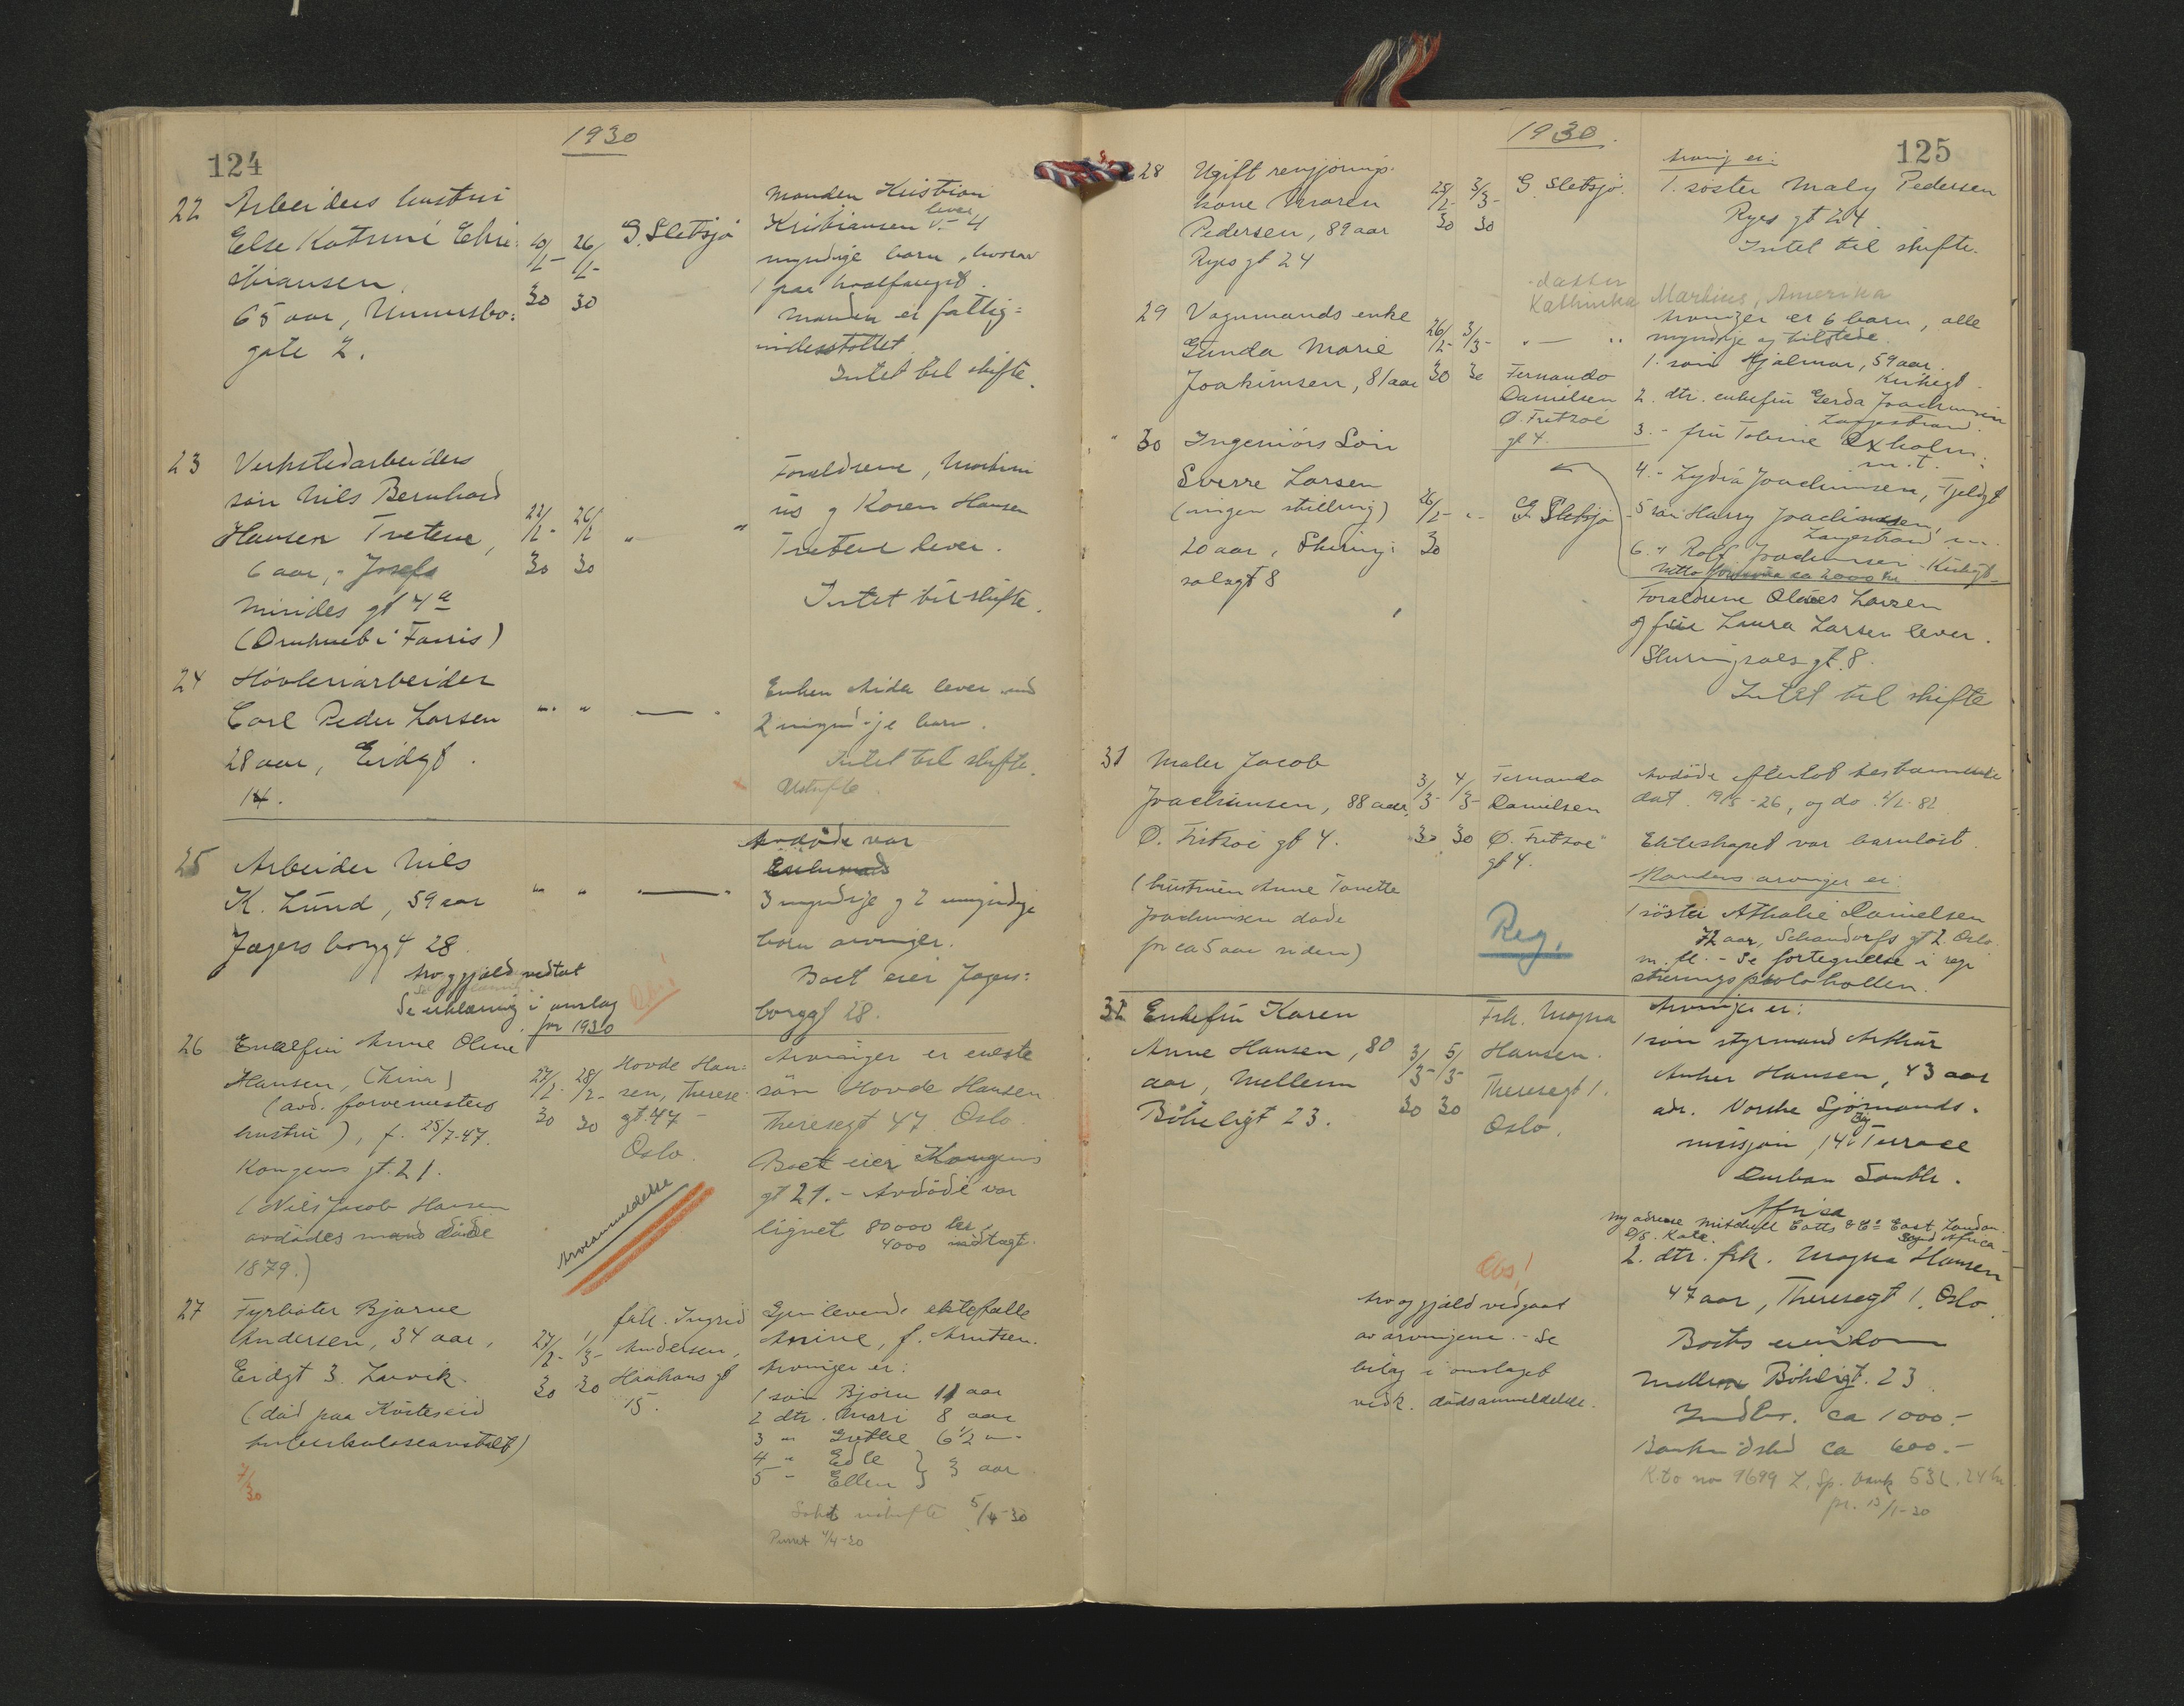 124
1930
22
Arbeiders hustru
Else Katrine Chri-
stiansen.
65 aar,
gate 2.
20/2- 30
26/2- 30
G. Sletsjø
Manden Kristian
Kristiansen lever 4
myndige barn, hvorav
1 paa hvalfangst.
Manden er fattig-
understøttet.
Intet til skifte.
23
Verkstedarbeiders
søn Nils Bernhard
Hansen Tvetene,
6 aar, Josefa
Minides gt 4a
(Druknet i Farris)
22/2- 30
26/2 30
" — "
Forældrene, Martini
us og Karen Hansen
Tvetene lever.
Intet til skifte.
24
Høvleriarbeider
Carl Peder Larsen
28 aar, Eidgt.
14.
" " — "
Enken Aida lever med
2 barn.
Intet til skifte.
Uskifte.
25
Arbeider Nils
K. Lund, 59 aar
Jegersborggt 28
" " — "
Avdøde var
Enkemand
3 myndige og 2 umyndige
barn arvinger.
Boet eier Jegers-
borggt 28.
Arv og gjæld vedtat
Se erklæring i omslag
for 1930
Obs!
26
Enkefru Anne Oline
Hansen, (Kina)
(avd. farvemesters
hustru), f. 25/7-47.
Kongens gt. 21.
(Nils Jacob Hansen
avdødes mand døde
1879.)
27/2- 30
28/2- 30
Hovde Han-
sen, Therese-
gt. 47 -
Oslo.
Arveanmeldelse
Arvinger er eneste
søn Hovde Hansen
Theresegt 47 Oslo.
Boet eier Kongens
gt 21. - Avdøde var
lignet 80000 kr,
4000 indtægt.
27
Fyrbøter Bjarne
Andersen, 34 aar,
Eidgt 3. Larvik
(død paa
tuberkuloseanstalt)
7/30
27/2- 30
1/3- 30
frk. Ingrid
Andersen,
Haakons gt
15.
Gjenlevende ektefælle
Anine, f. Knutsen.
Arvinger er:
1 søn Bjørn 11 aar
2 dtr. Mari 8 aar
3 " Grethe 6 1/2 "
4 " Edle } 3 aar
5 " Ellen
Søkt uskifte 5/4-30
Purret 4/4-30
125
1930.
28
Ugift rengjørings-
kone Maren
Pedersen, 89 aar
Ryes gt 24
25/2- 30
3/3- 30
G. Sletsjø.
Arving er:
1. søster Maly Pedersen
Ryes gt 24.
Intet til skifte.
datter
Kathinka Martins, Amerika
29
Vognmands enke
Gunda Marie
Joakimsen, 81 aar
26/2- 30
3/3- 30
" — "
Fernando
Danielsen
Ø. Fritzøe
gt 4.
Arvinger er 6 barn, alle
myndige og tilstede.
1. søn Hjalmar, 59 aar.
Kirkegt.
2. dtr. enkefru Gerda Joachimsen
Langestrand.
3. - fru Tobine Oxholm.
m.t.
4. - Lydia Joachimsen, Fjeldgt
5 søn Harry Joachimsen,
Langestrand
6. " Rolf Joachimsen. Kirkegt.
Netto formue ca 2000 kr.
30
Ingeniørs Søn
Sverre Larsen
(ingen stilling)
20 aar, Skiring-
salsgt 8
26/2- 30
" -
G. Sletsjø
Forældrene Larsen
og frue Laura Larsen lever.
Skiringsals gt. 8.
Intet til skifte
31
Maler Jacob
Joachimsen, 88 aar,
Ø. Fritzøe gt 4.
(hustruen Anne Tonette
Joachimsen døde
for ca 5 aar siden)
3/3- 30
4/3- 30
Fernando
Danielsen
Ø. Fritzøe
gt 4.
Reg.
Avdøde efterlot testamente
dat. 19/5-26, og do. 2/2-82
Ekteskapet var barnløst.
Mandens arvinger er:
1 søster Athalie Danielsen
72 aar, Schandorfs gt 2. Oslo
m. fl. - Se fortegnelse i regi
streringsprotokollen.
32
Enkefru Karen
Anne Hansen, 80
aar, Mellem
Bøkeligt 23.
3/3- 30
5/3- 30
Frk. Magna
Hansen.
Theresegt 1.
Oslo.
Arvinger er:
1 søn styrmand Arthur
Anker Hansen, 43 aar
adr. Norske Sjømands-
misjon, 14 Bay Terrace
Durban South.
Africa
Ny adresse Mitchell Cotts & Co East London
D/S. Kale. Syd Africa -
2. dtr. frk. Magna Hansen
47 aar, Theresegt 1. Oslo.
Obs!
Arv og gjæld vedgaat
av arvingene. - Se
bilag i omslaget
vedk. dødsanmeldelse.
Boets eiendom
Mellem Bøkeligt. 23
Indbo. ca 1000.-
Bankindskud ca 600.-
Kto no 9699 L. Sp. bank 632.24 kr
pr. 13/1-30